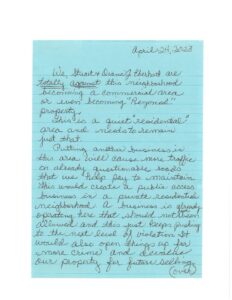 April 24, 2023
We, Stuart & Diane J. Eberhart are
totally against this neighborhood
becoming a commercial area
or even becoming "Rezoned"
property.
This is a quiet "residential"
area and needs to remain
just that.
Putting another business in
this area will cause more traffic
on already questionable roads
that we help pay to maintain.
This would create a public access
business in a private residential
neighborhood. A business is already
operating here that should not have been
allowed and this just keeps pushing
to the next level of violation. It
would also open things up for
more crime and devalue
our property for future selling.
(over)